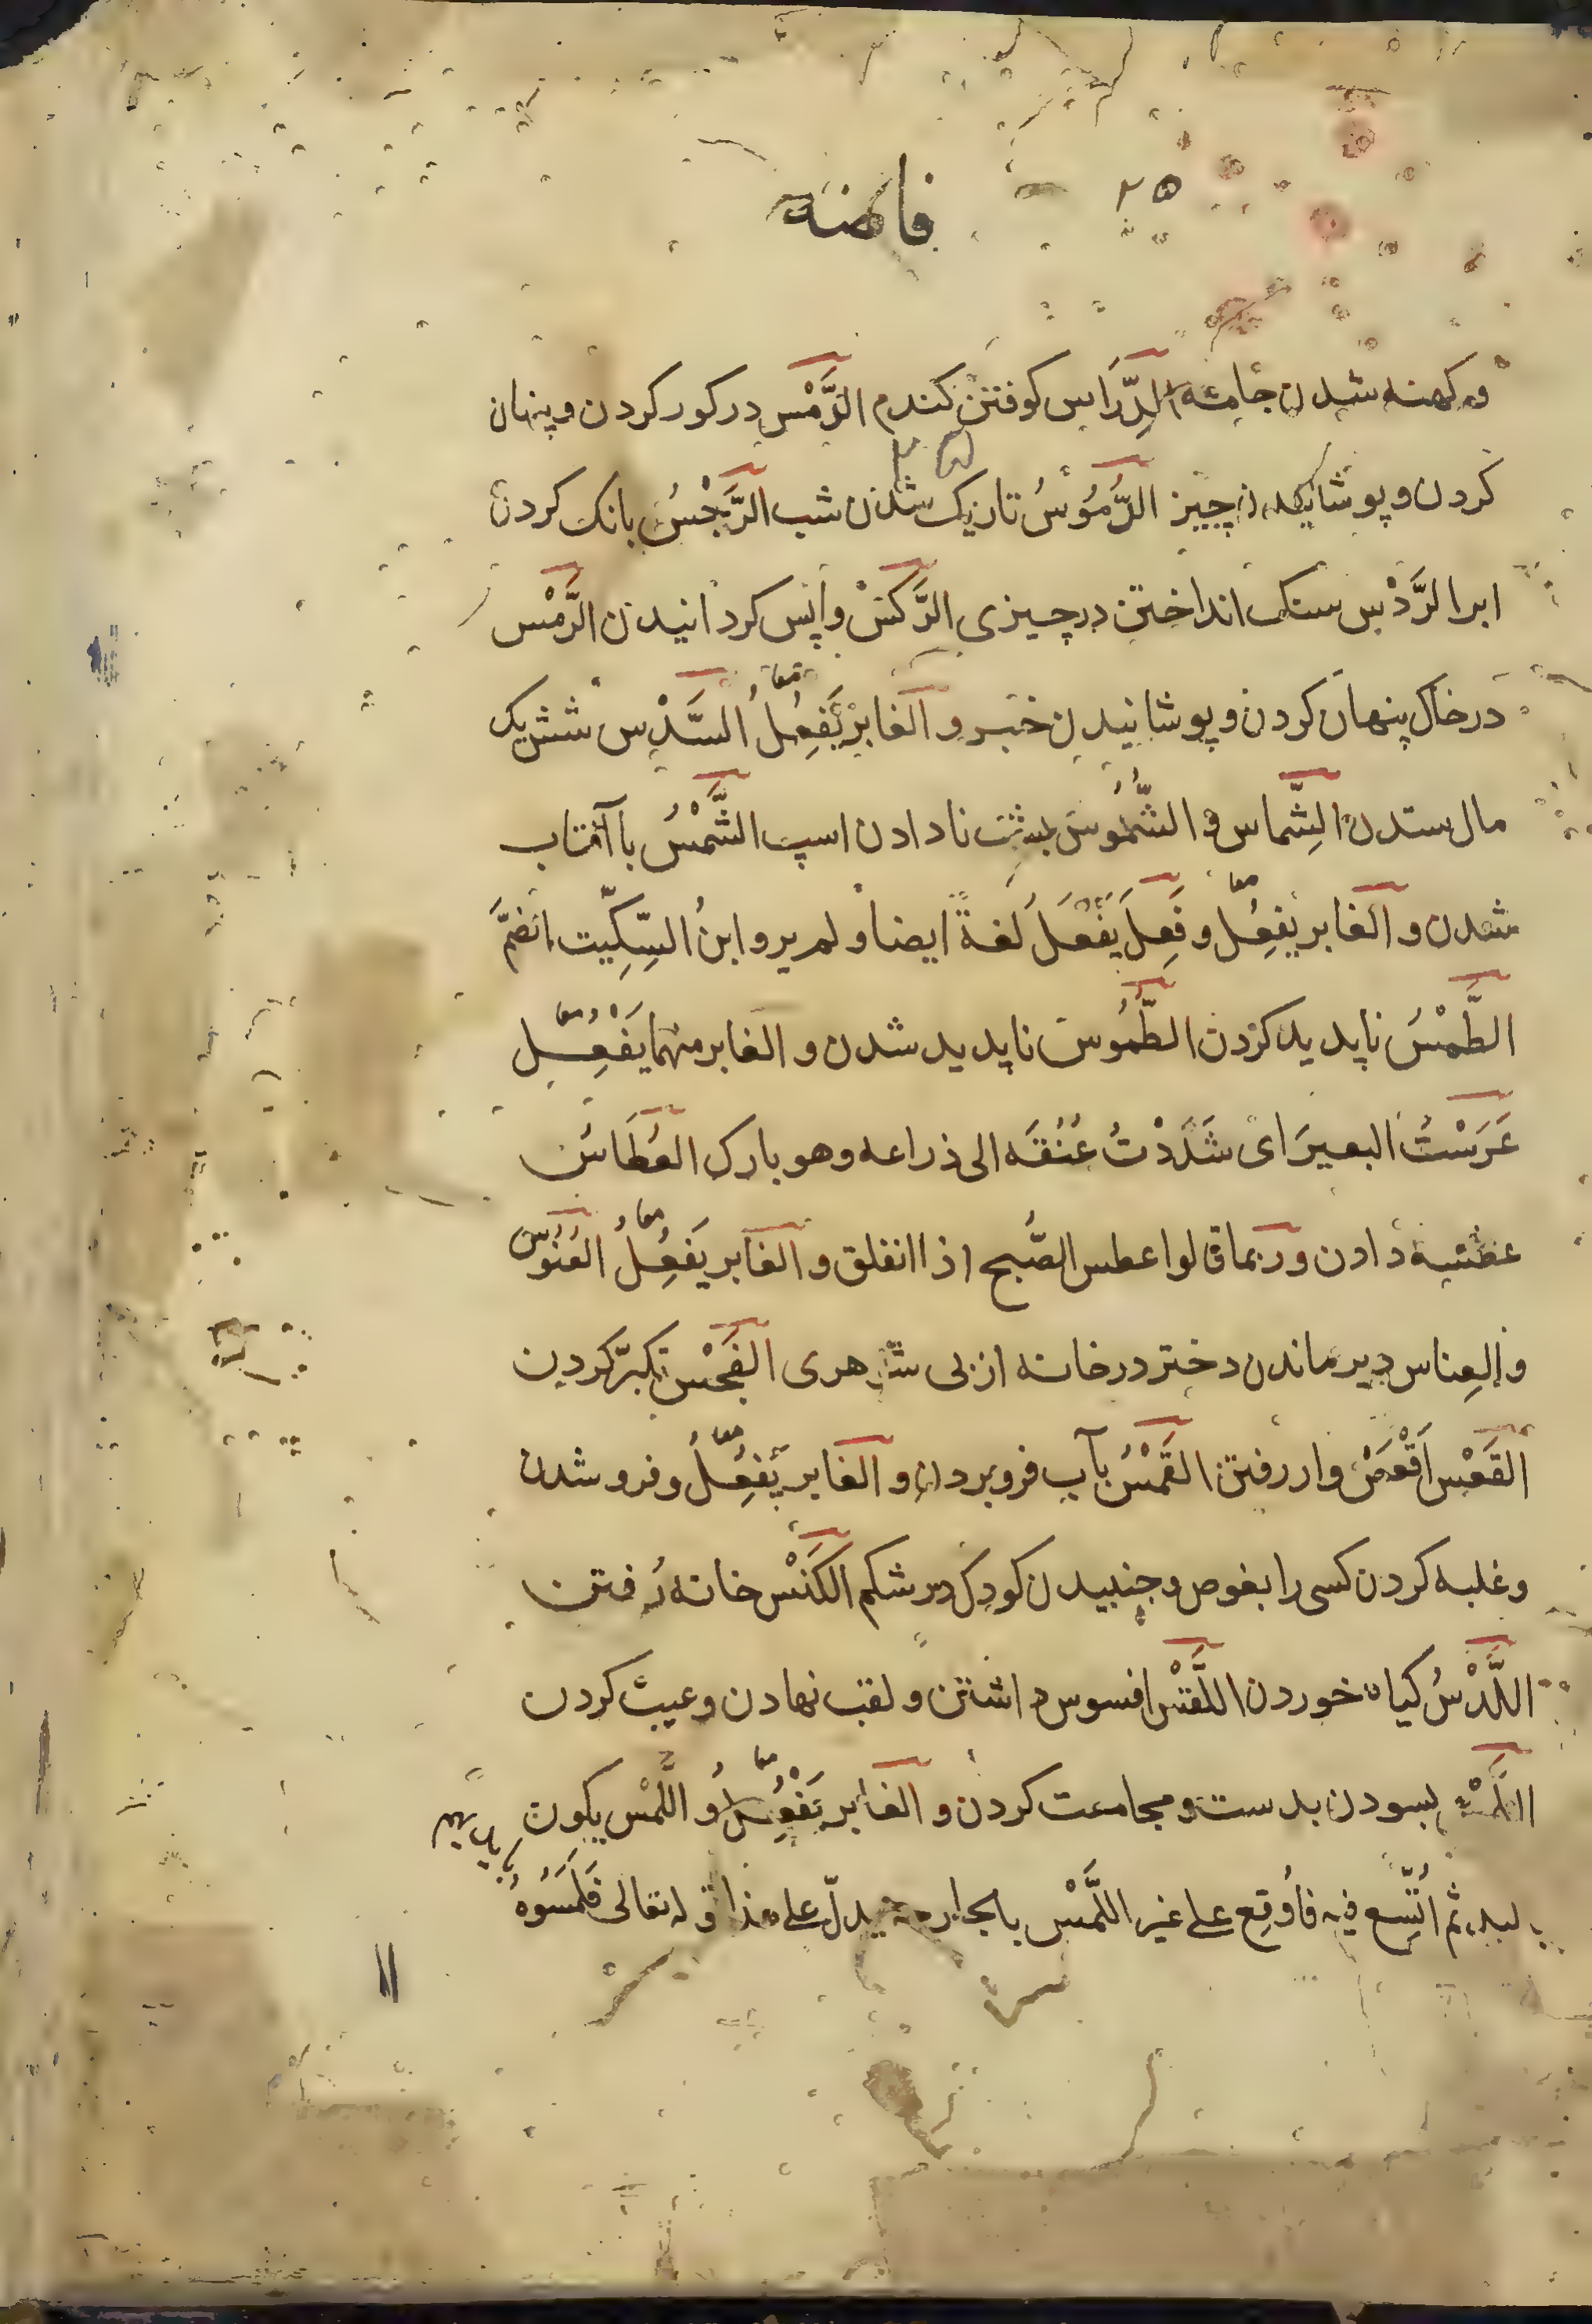 ۲۵
و کهنه شدن جامه الدِّرَاس کوفتن کندم الدَّمْس در کور کردن و پنهان
۲۵
کردن و پوشانیدن چیز الدُّمُوْسُ تاریک شدن شب الرَّجْسُ بانک کردن
ابر الرَّدْس سنک انداختن در چیزی الرَّکسْ واپس کردانیدن الرَّمْس
در خاک پنهان کردن و پوشانیدن خبر و الغابر یَفعِلُ معا السَّدْس شش یک
مال ستدن الشِّماس و الشُّمُوس پشت نادادن اسپ الشَّمْسُ با آفتاب
شدن و الغابر یفعِل معا و فَعِلَ یَفْعَلَ لغةً ایضا و لم یرو ابنُ السِّکِّیت الضَمَّ
الطَّمْسُ ناپدید کردن الطُّمُوس ناپدید شدن و الغابر منهما یَفْعِل معا
عَرَسْتُ البعیرَ ای شَدَدْتُ عُنُقَه الی ذراعه و هو بارک العُطَاسُ
عطسه دادن و ربما قالوا عطس الصُّبح اذا انفلق و الغابر یَفعِلُ معا العُنُوْس
و العِناس دیر ماندن دختر در خانه از بی شوهری الفَجْس تکبّر کردن
القَعْس اَقْعَصْ وار رفتن القَمْسُ بآب فرو بردن و الغابر یَفعِلُ معا و فرو شدن
و غلبه کردن کسی را بغوص و جنبیدن کودک در شکم الکَنْس خانه رُفتن
اللَّدْسُ کیاه خوردن اللَّقْس افسوس داشتن و لقب نهادن و عیب کردن
اللَّمْس بسودن بدست و مجامعت کردن و الغابر یَفْعِلُ معا و اللَّمْس یکون
بالید ثم اُتُّسِع فیه فاُوقِع علی غیر اللَّمْس بالجارحة یدلّ علی هذا قوله تعالی فَلَمَسُوهُ